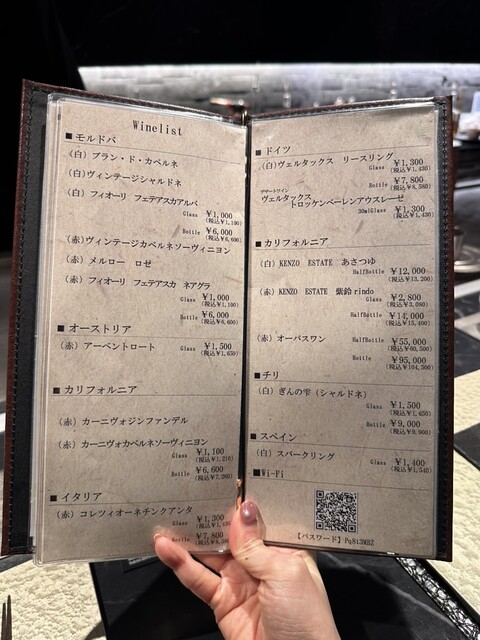 Winelist
■ モルドバ
(白) ブラン・ド・カベルネ
(白) ヴィンテージシャルドネ
(白) フィオーリ フェテアスカアルバ
Glass ¥1,000
(税込¥1,100)
Bottle ¥6,000
(税込¥6,600)
(赤) ヴィンテージカベルネソーヴィニヨン
(赤) メルロー ロゼ
(赤) フィオーリ フェテアスカ ネアグラ
Glass ¥1,000
(税込¥1,100)
Bottle ¥6,000
(税込¥6,600)
■ オーストリア
(赤) アーベントロート Glass ¥1,500
(税込¥1,650)
■ カリフォルニア
(赤) カーニヴォジンファンデル
(赤) カーニヴォカベルネソーヴィニヨン
Glass ¥1,100
(税込¥1,210)
Bottle ¥6,600
(税込¥7,260)
■ イタリア
(赤) コレツィオーネチンクアンタ
Glass ¥1,300
(税込¥1,430)
Bottle ¥7,800
■ ドイツ
(白) ヴェルタックス リースリング
Glass ¥1,300
(税込¥1,430)
Bottle ¥7,800
(税込¥8,580)
デザートワイン
ヴェルタックス
トロッケンベーレンアウスレーゼ
30mlGlass ¥1,300
(税込¥1,430)
■ カリフォルニア
(白) KENZO ESTATE あさつゆ
HalfBottle ¥12,000
(税込¥13,200)
(赤) KENZO ESTATE 紫鈴 rindo
Glass ¥2,800
(税込¥3,080)
HalfBottle ¥14,000
(税込¥15,400)
(赤) オーパスワン HalfBottle ¥55,000
(税込¥60,500)
Bottle ¥95,000
(税込¥104,500)
■ チリ
(白) ぎんの雫 (シャルドネ)
Glass ¥1,500
(税込¥1,650)
Bottle ¥9,000
(税込¥9,900)
■ スペイン
(白) スパークリング Glass ¥1,400
(税込¥1,540)
■ Wi-Fi
【パスワード】Pq813WBZ